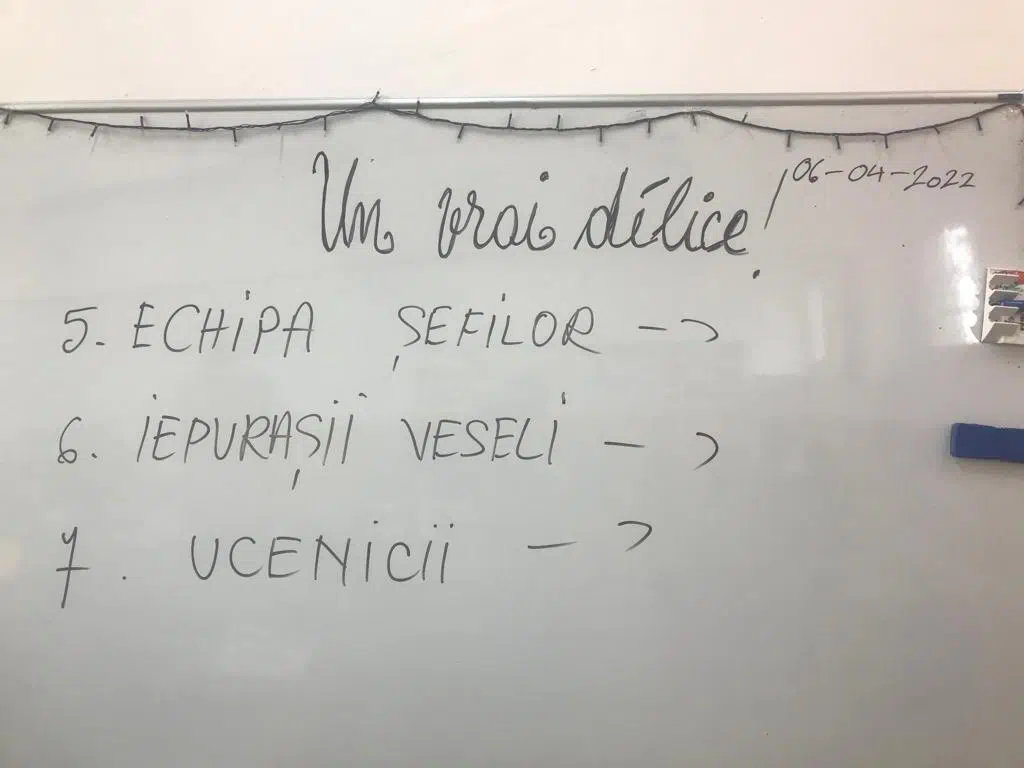 Un vrai délice! 06-04-2022
5. ECHIPA ȘEFILOR →
6. IEPURAȘII VESELI →
7. UCENICII →